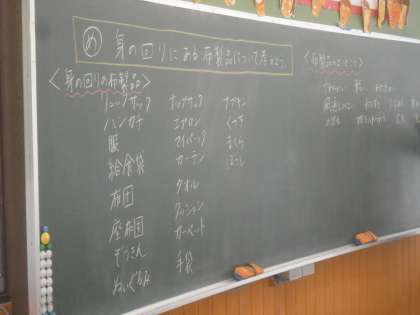 め 身の回りにある布製品について考えよう。
<身の回りの布製品>
リュックサック ナップサック ナプキン
ハンカチ エプロン くつ下
服 マイバック まくら
給食袋 カーテン ぼうし
布団 タオル
座布団 クッション
ぞうきん カーペット
ぬいぐるみ 手袋
<布製品のよいところ>